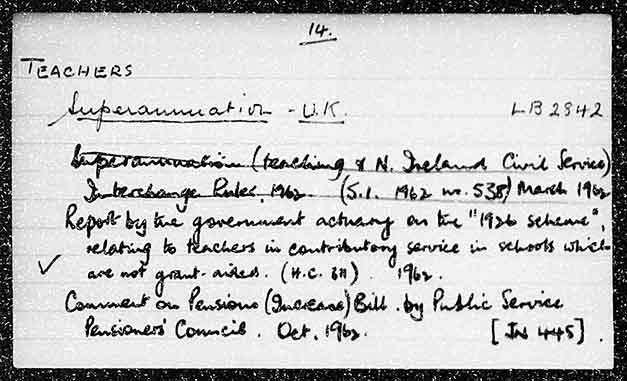 14.
TEACHERS
Superannuation - U.K. LB 2842
Superannuation (teaching & N. Ireland Civil Service)
Interchange Rules, 1962. (S.I. 1962 no. 538) March 1962
Report by the government actuary on the "1926 scheme",
relating to teachers in contributory service in schools which
✓ are not grant-aided. (H.C. 311). 1962.
Comment on Pensions (Increase) Bill. by Public Service
Pensioners' Council. Oct. 1962. [IN 445]